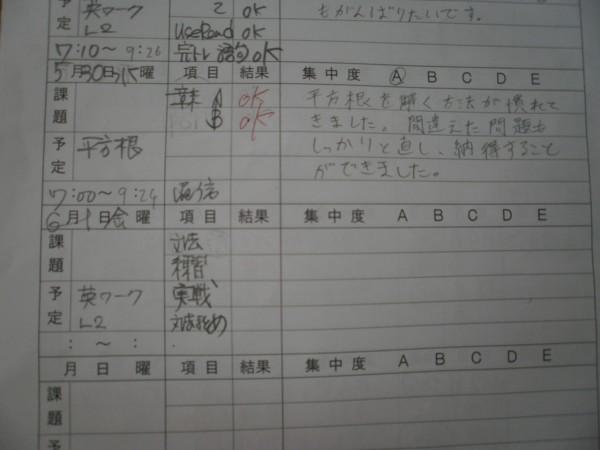 予定 英ワーク 2 OK もがんばりたいです。
L2 UseRead OK
7:10～9:26 完トレ 語句 OK
5月30日水曜 項目 結果 集中度 A B C D E
課題 章末 A OK 平方根を解く方法が慣れて
B OK きました。間違えた問題も
予定 平方根 しっかりと直し、納得すること
ができました。
7:00～9:24 通信
6月1日金曜 項目 結果 集中度 A B C D E
課題 文法
練習
予定 英ワーク 実戦
L2
: ～ :
月 日 曜 項目 結果 集中度 A B C D E
課題
予